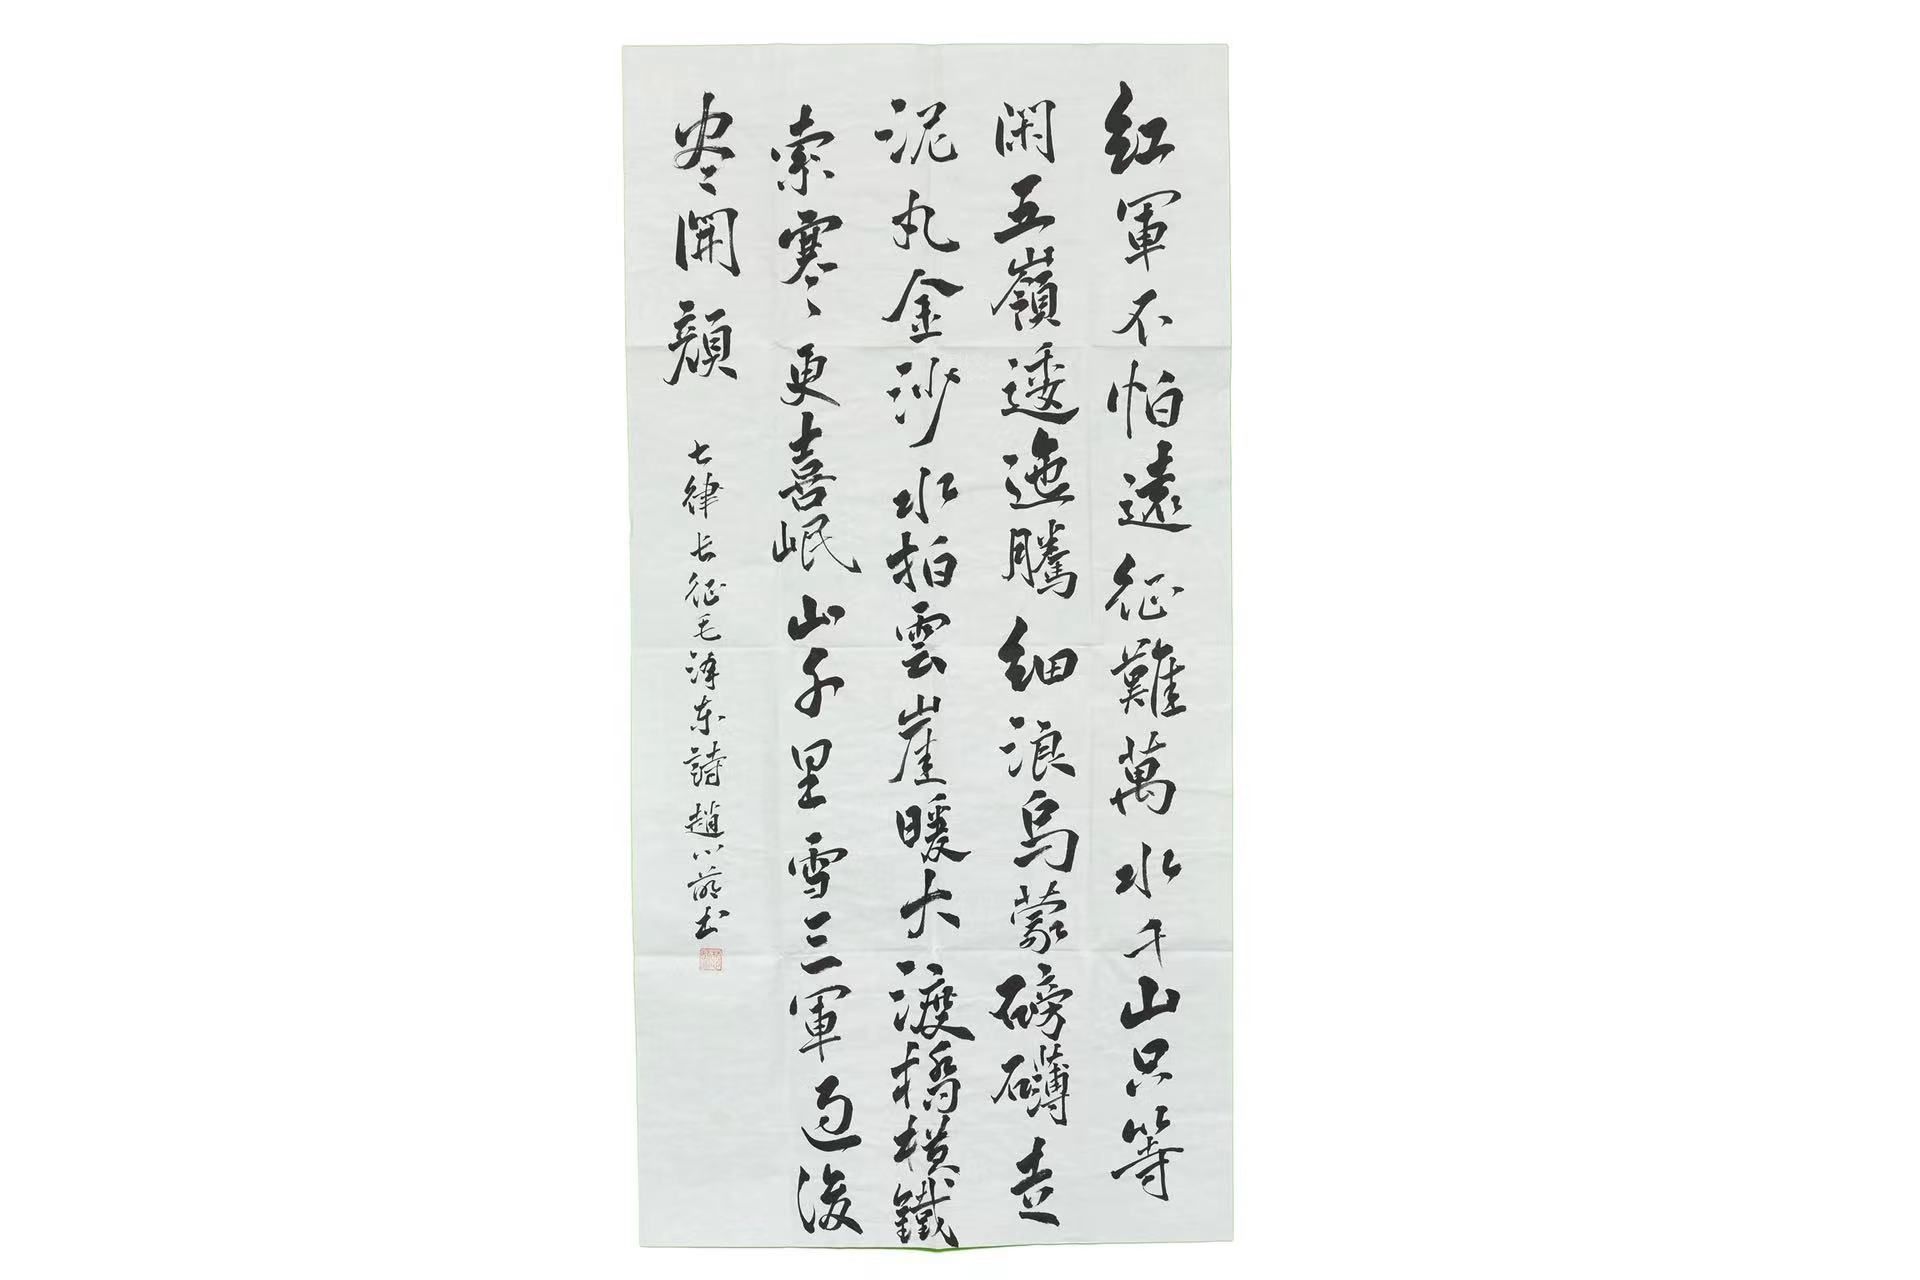 紅軍不怕遠征難萬水千山只等
閑五嶺逶迤騰細浪烏蒙磅礴走
泥丸金沙水拍雲崖暖大渡橋橫鐵
索寒更喜岷山千里雪三軍過後
尽開顏
七律长征毛泽东詩趙小书